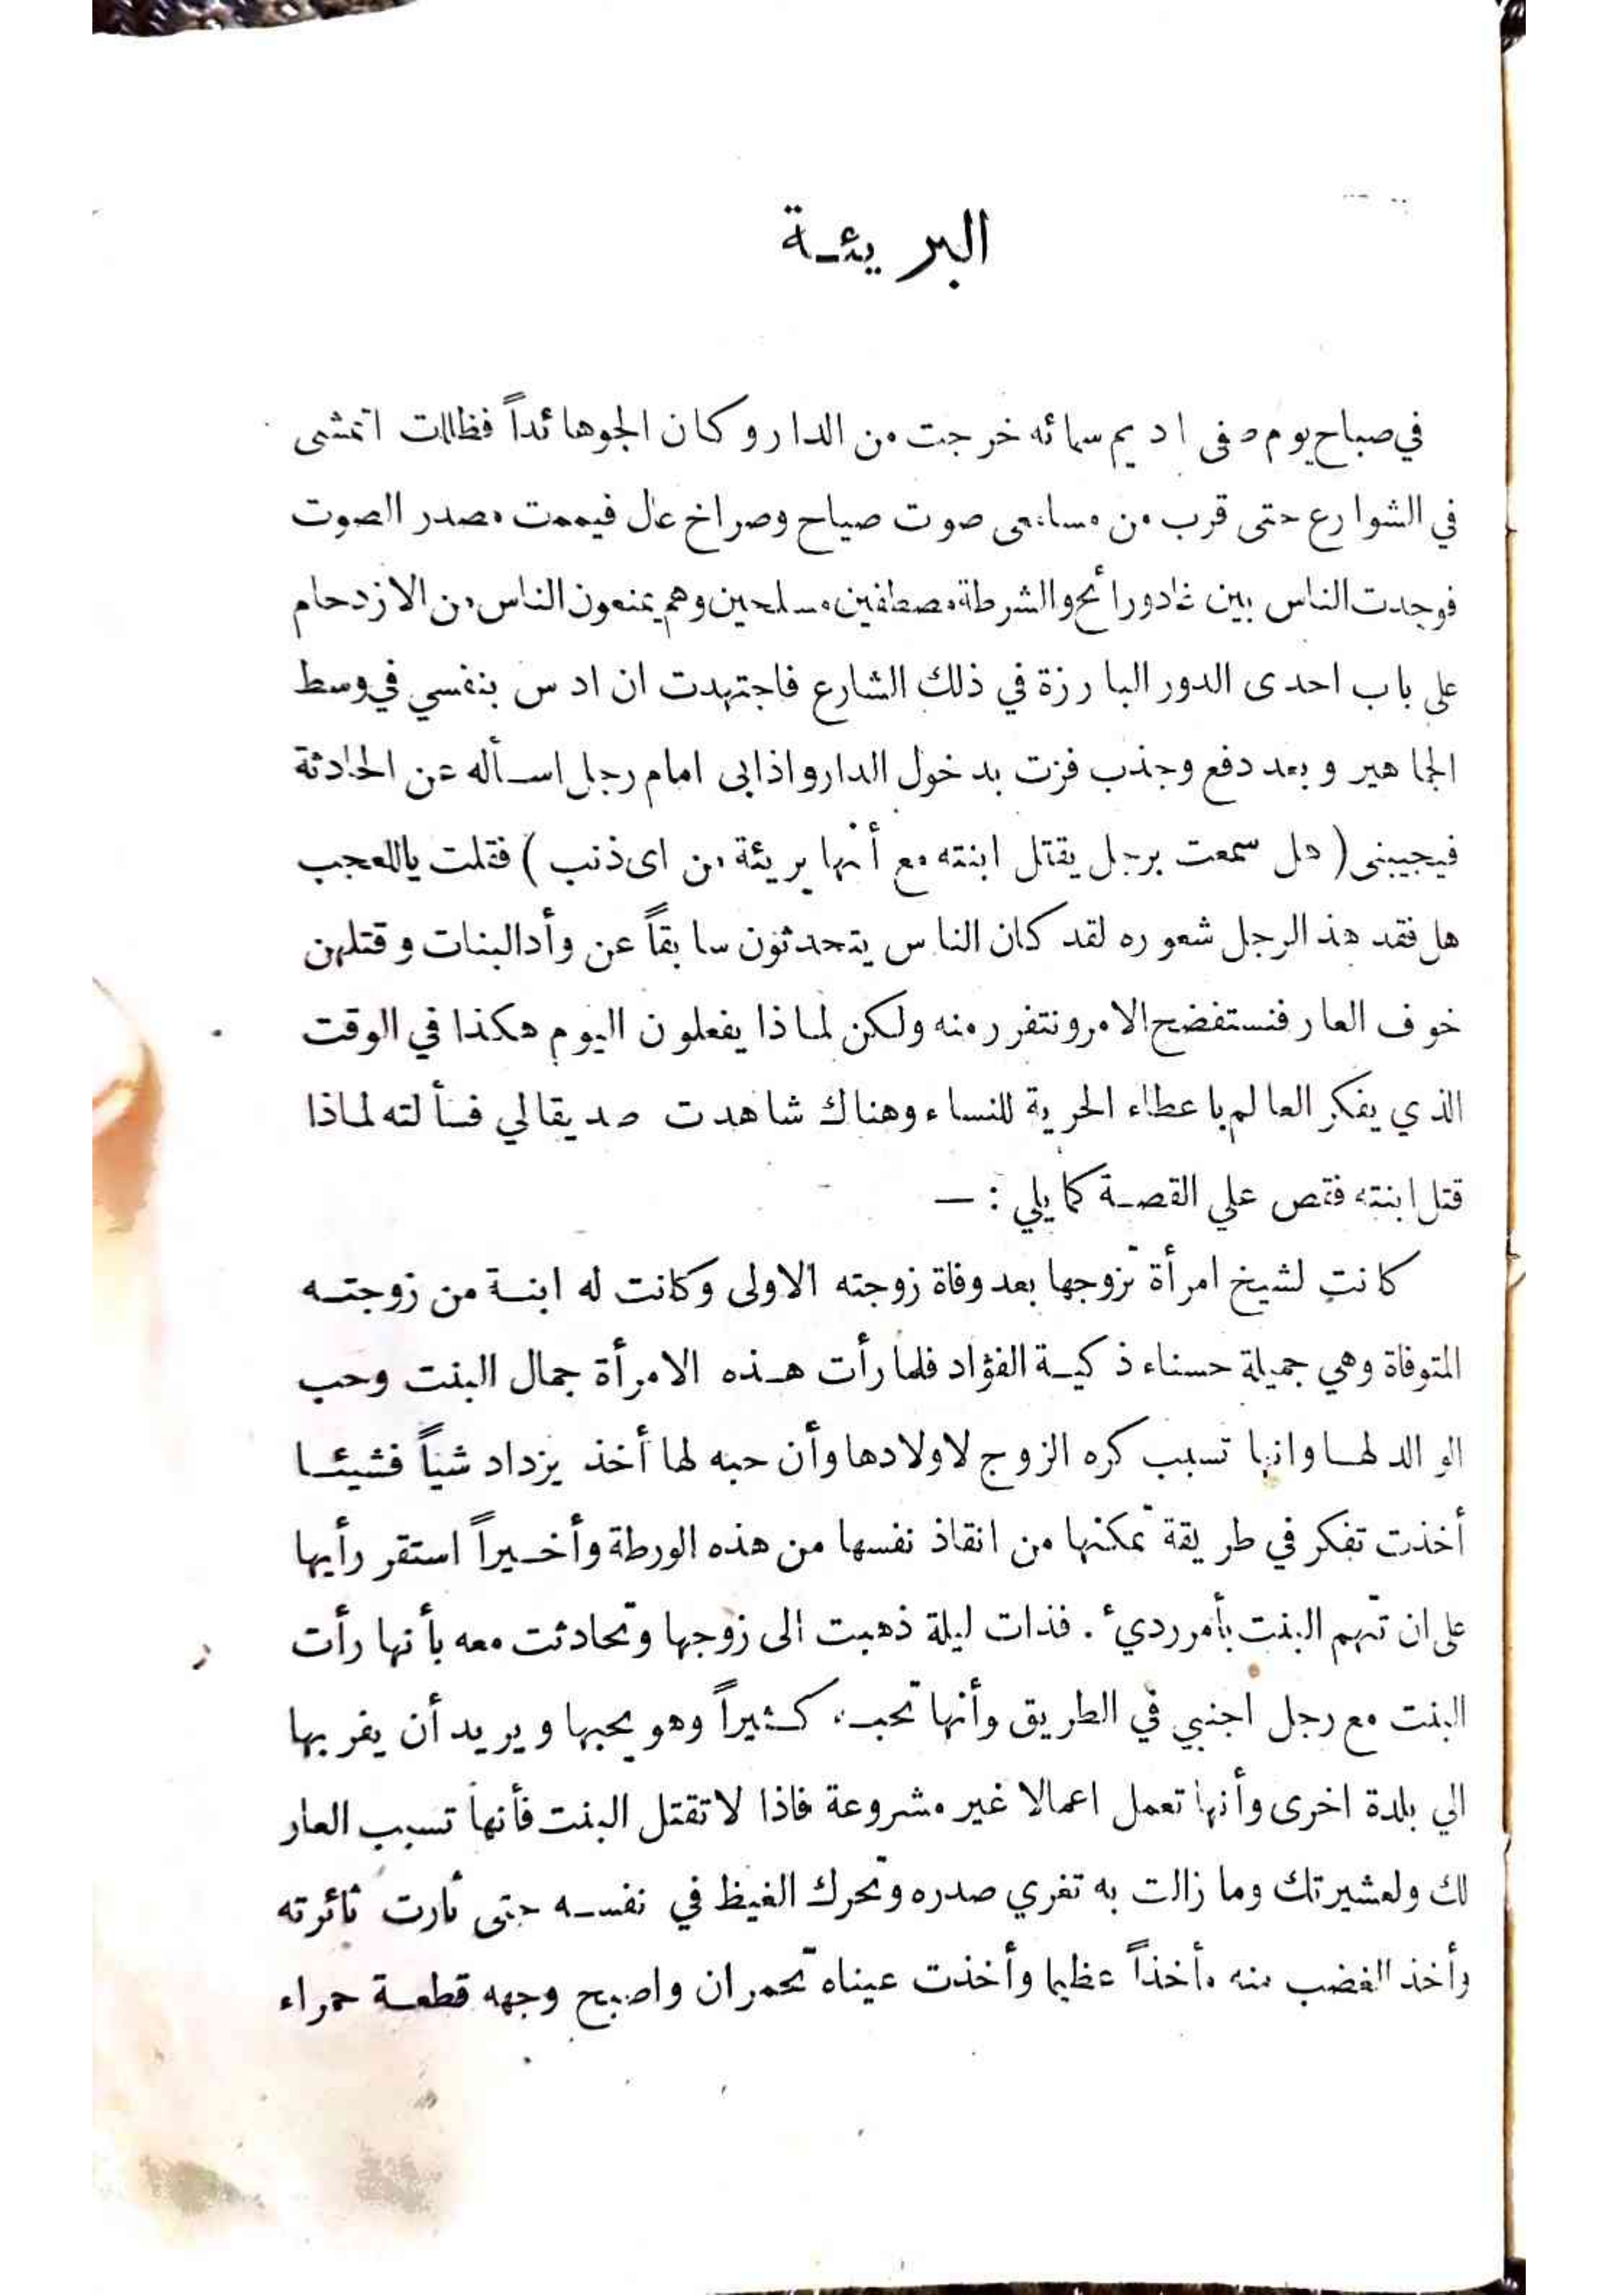 البريئة
في صباح يوم صفى اديم سمائه خرجت من الدار وكان الجو هائداً فظللت اتمشى
في الشوارع حتى قرب من مسامعى صوت صياح وصراخ عال فيممت مصدر الصوت
فوجدت الناس بين غاد ورائح والشرطة مصطفين مسلحين وهم يمنعون الناس من الازدحام
على باب احدى الدور البارزة في ذلك الشارع فاجتهدت ان ادس بنفسي في وسط
الجماهير وبعد دفع وجذب فزت بدخول الدار واذابى امام رجل اسأله عن الحادثة
فيجيبنى ( هل سمعت برجل يقتل ابنته مع أنها بريئة من اى ذنب ) فقلت ياللعجب
هل فقد هذ الرجل شعوره لقد كان الناس يتحدثون سابقاً عن وأد البنات وقتلهن
خوف العار فنستفضح الامر ونتفرر منه ولكن لماذا يفعلون اليوم هكذا في الوقت
الذي يفكر العالم باعطاء الحرية للنساء وهناك شاهدت صديقا لي فسألته لماذا
قتل ابنته فقص علي القصة كما يلي : —
كانت لشيخ امرأة تزوجها بعد وفاة زوجته الاولى وكانت له ابنة من زوجته
المتوفاة وهي جميلة حسناء ذكية الفؤاد فلما رأت هذه الامرأة جمال البنت وحب
الوالد لها وانها تسبب كره الزوج لاولادها وأن حبه لها أخذ يزداد شيأً فشيئا
أخذت تفكر في طريقة تمكنها من انقاذ نفسها من هذه الورطة وأخيراً استقر رأيها
على ان تتهم البنت بأمر رديء . فذات ليلة ذهبت الى زوجها وتحادثت معه بأنها رأت
البنت مع رجل اجنبي في الطريق وأنها تحبه كثيراً وهو يحبها ويريد أن يفر بها
الي بلدة اخرى وأنها تعمل اعمالا غير مشروعة فاذا لا تقتل البنت فأنها تسبب العار
لك ولعشيرتك وما زالت به تغري صدره وتحرك الغيظ في نفسه حتى ثارت ثائرته
وأخذ الغضب منه مأخذاً عظيما وأخذت عيناه تحمران واصبح وجهه قطعة حمراء